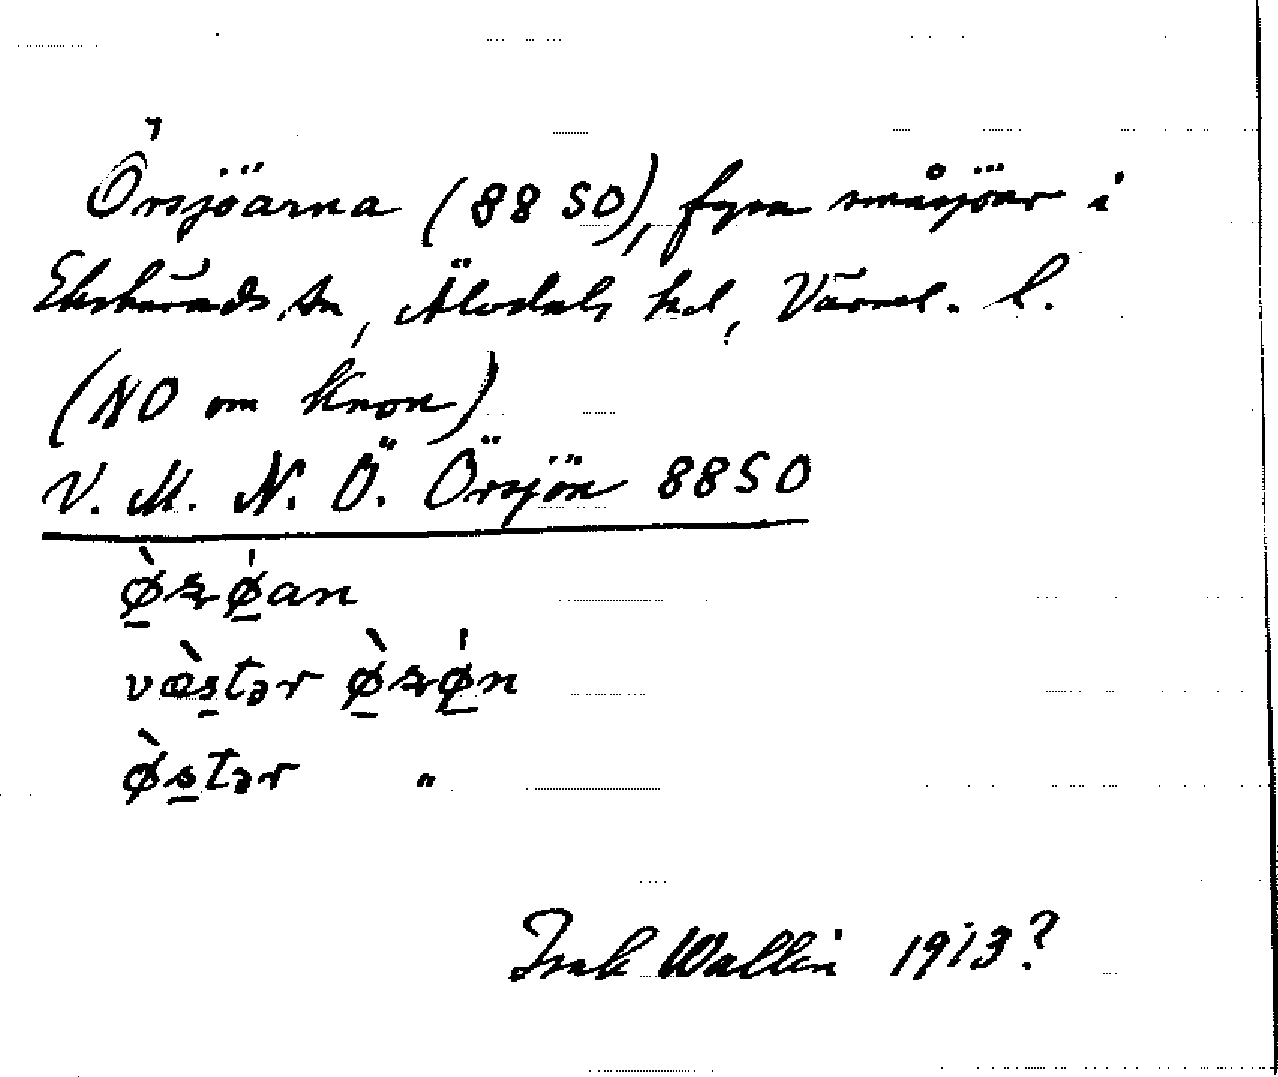 Örsjöarna (88 SO), fyra småsjöar i
Ekshärads sn, Älvdals hd, Värml. l.
(NO om Knon)
V. M. N. Ö. Örsjön 88SO
væ̀stər
ø̀stər "
Isak Wallin 1913?